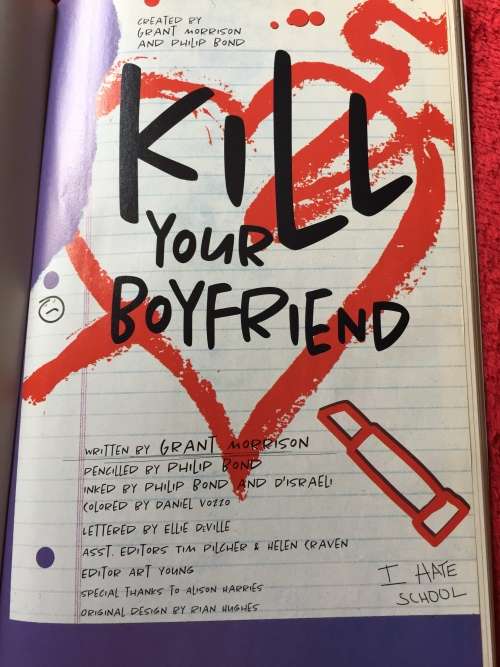 CREATED BY
GRANT MORRISON
AND PHILIP BOND
KiLL
YOUR
BOYFRiEND
WRITTEN BY GRANT MORRISON
PENCILLED BY PHILIP BOND
INKED BY PHILIP BOND AND D'ISRAELI
COLORED BY DANIEL VOZZO
LETTERED BY ELLIE DEVILLE
ASST. EDITORS TIM PILCHER & HELEN CRAVEN
EDITOR ART YOUNG
SPECIAL THANKS TO ALISON HARRIES
ORIGINAL DESIGN BY RIAN HUGHES
I HATE
SCHOOL